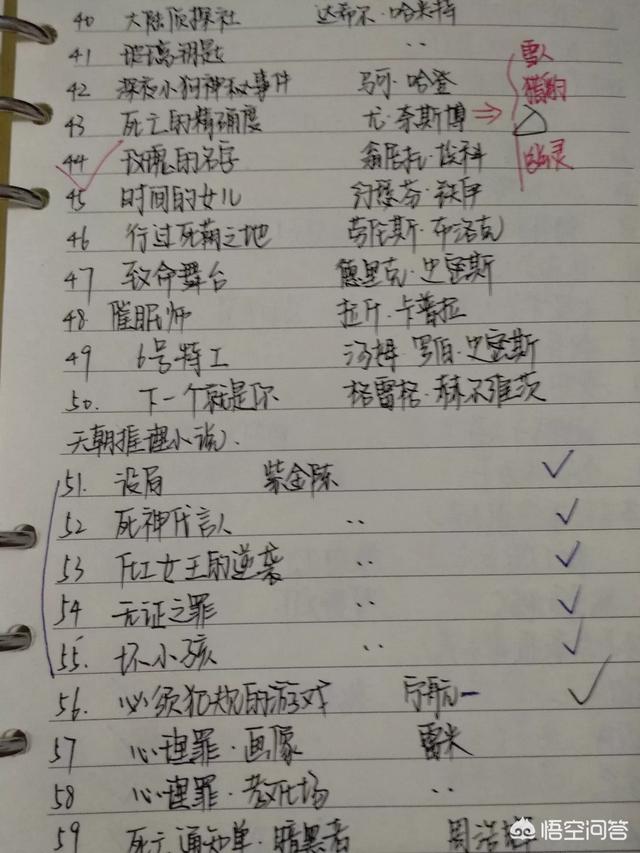 40 大陆侦探社 达希尔·哈米特
41 玻璃钥匙 ··
42 深夜小狗神秘事件 马可·哈登
雪人
猎豹
43 死亡的精确度 尤·奈斯博 ⇒
44 玫瑰的名字 翁贝托·埃科
幽灵
45 时间的女儿 约瑟芬·铁伊
46 行过死荫之地 劳伦斯·布洛克
47 致命舞台 德里克·史密斯
48 催眠师 拉斤·卡普拉
49 6号特工 汤姆·罗伯·史密斯
50. 下一个就是你 格雷格·赫尔维茨
天朝推理小说、
51. 设局 紫金陈
52 死神代言人 ··
53 化工女王的逆袭 ··
54 无证之罪 ··
55. 坏小孩 ··
56. 必须犯规的游戏 宁航一
57 心理罪·画像 雷米
58 心理罪·教化场 ··
59 死亡通知单·暗黑者 周浩晖
悟空问答